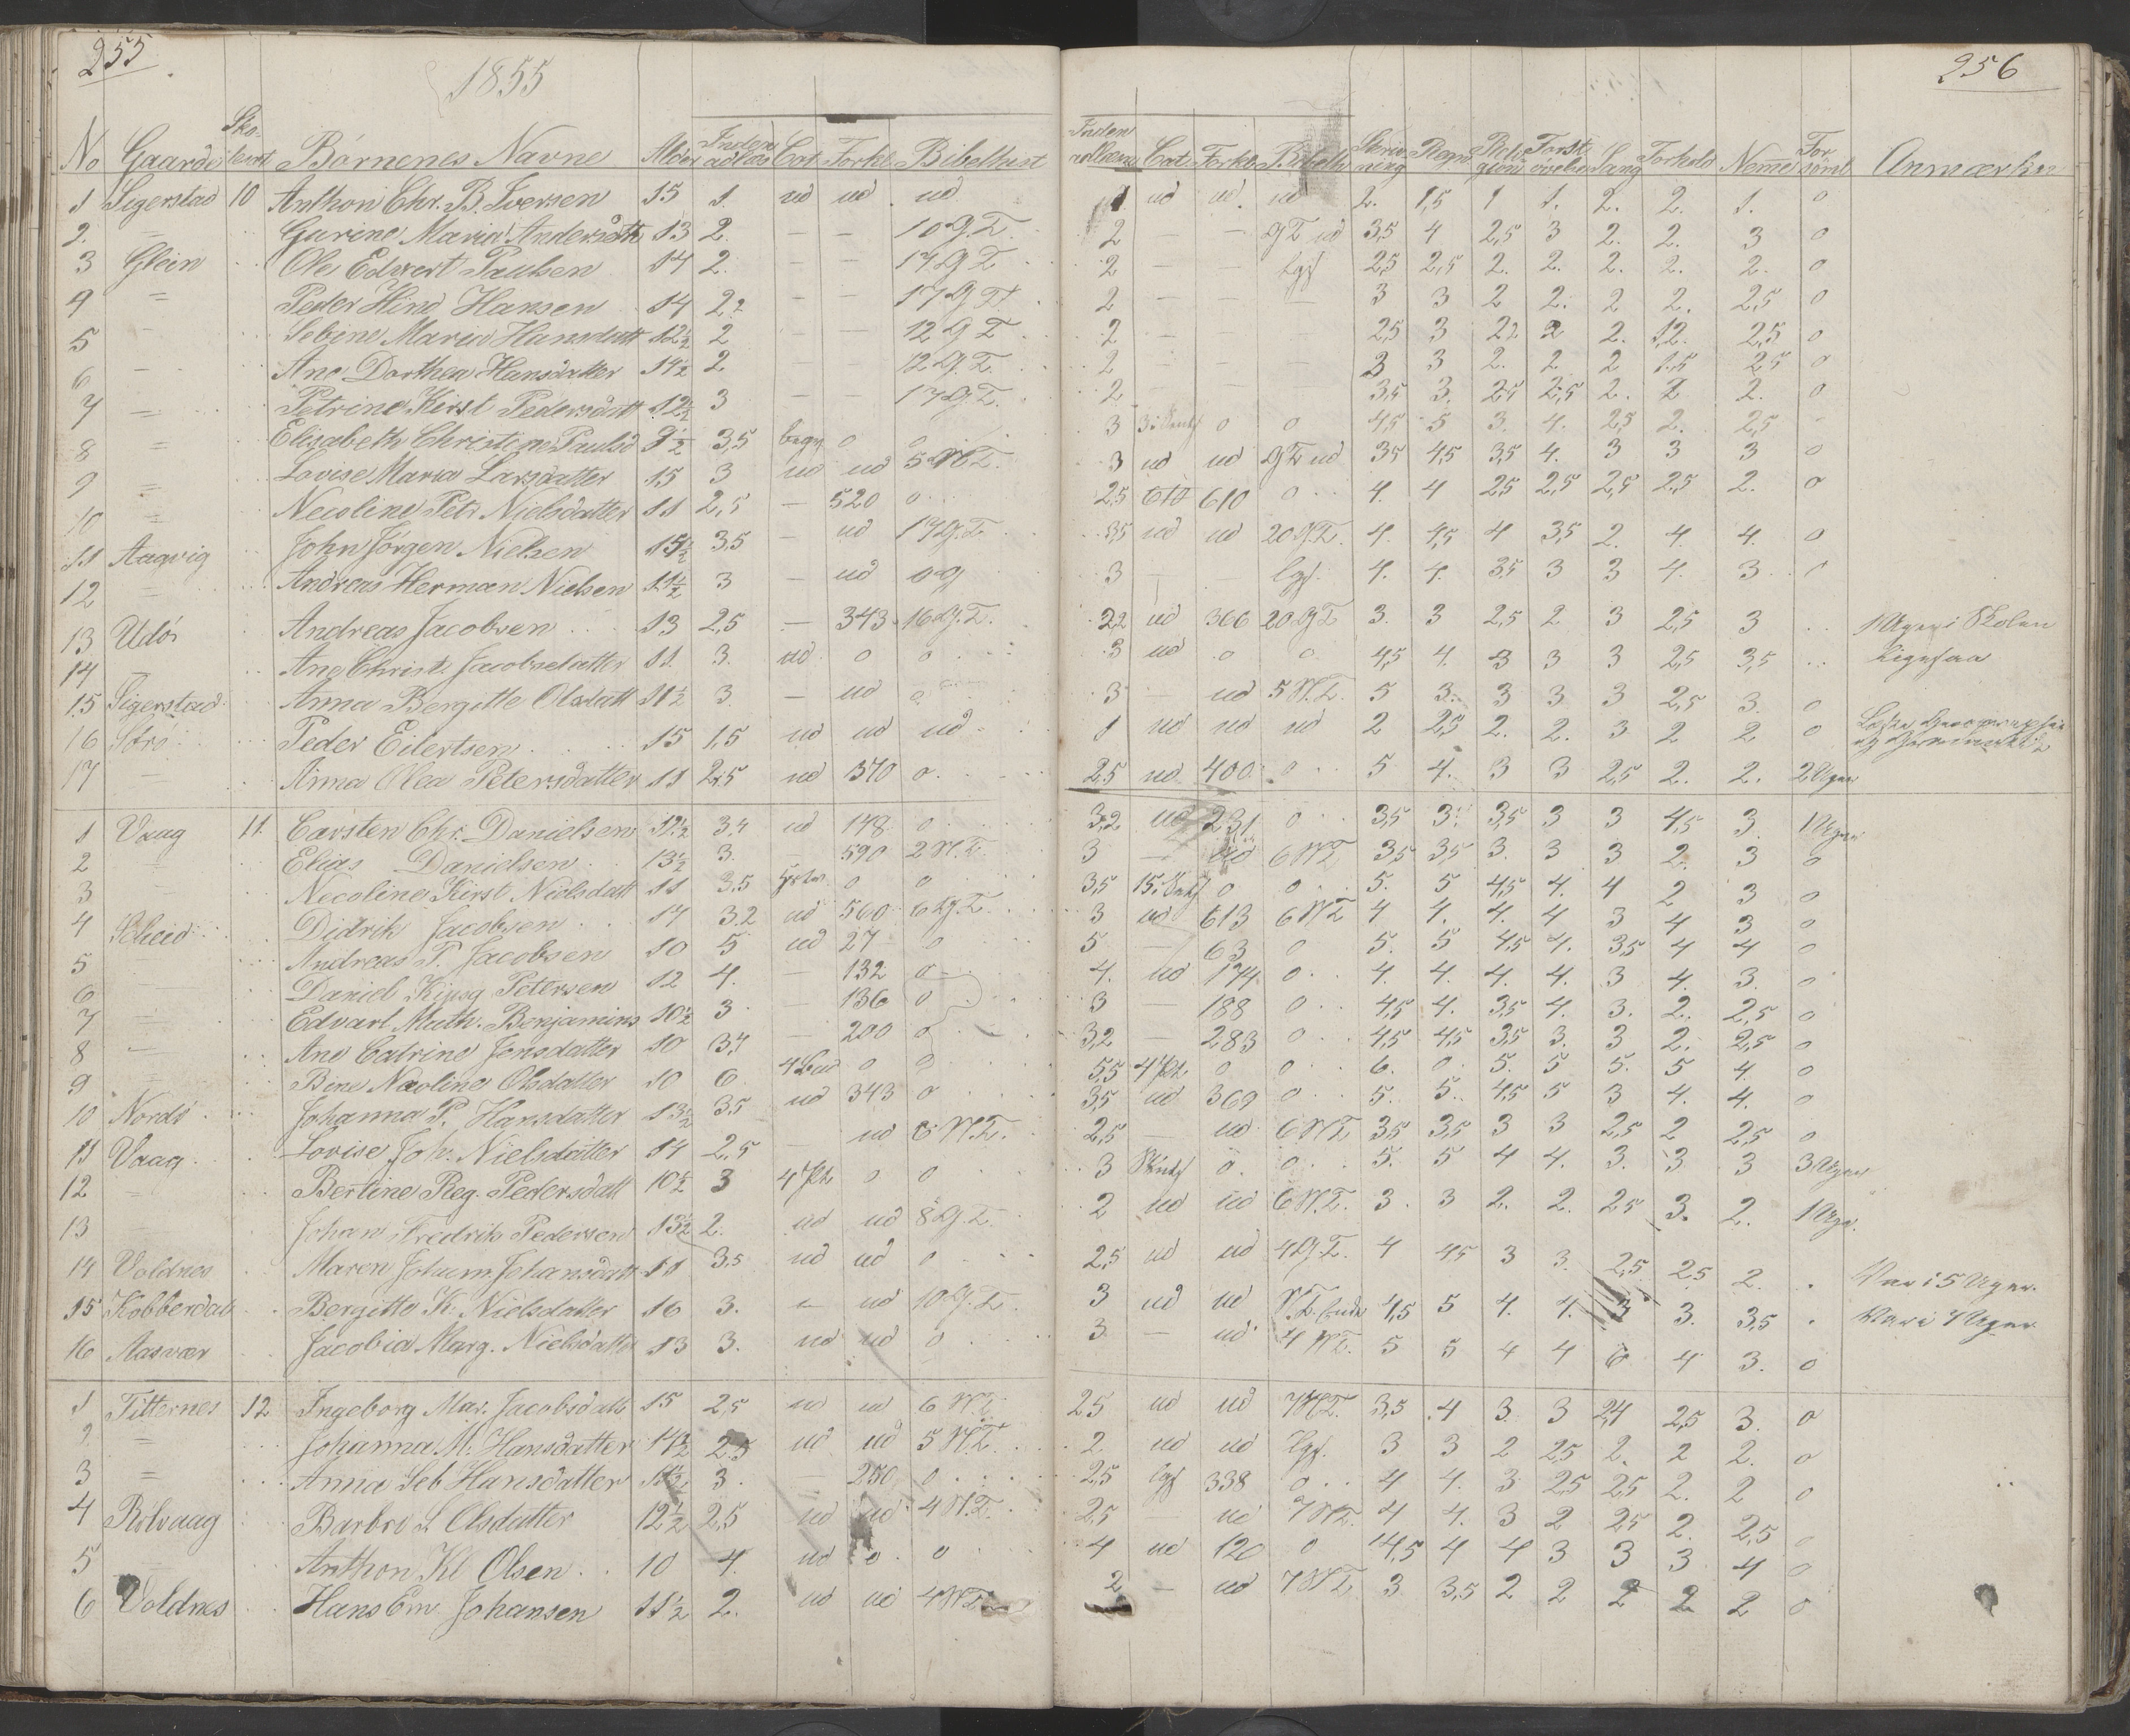 255
1855
No Gaarde Skoletext Børnenes Navne Alder Inden adlæs Cat Forkl Bibelhist
1 Sigerstad 10 Anthon Chr. B. Iversen 15 1. ud ud ud
2. = Gurine Maria Andersdtt 13 2. — — 10 G.T.
3 Glein Ole Edvert Paulsen 14 2. — — 17 G T
4 = Peder Hind Hansen 14 2,2 — — 17 G T.
5 Sebine Maria Hansdatt 12½ 2 — — 12 G T
6 Ane Dorthea Hansdatter 14½ 2 — — 12 G.T.
7 Petrine Kirst Pedersdatt 12½ 3 — — 17 G.T.
8 = Elisabeth Christine Paulsd 9½ 3,5 begy. 0 0
9 = Lovise Maria Larsdatter 15 3 ud ud 5 N.T.
10 = Necoline Petr Nielsdatter 11 2,5 — 520 0
11 Aagvig John Jørgen Nielsen 15½ 3,5 — ud 17 G.T.
12 Andreas Herman Nielsen 11½ 3 — ud og
13 Udø Andreas Jacobsen 13 2,5 — 343 16 G.T.
14 Ane Christ. Jacobsdatter 11. 3. ud 0 0
15 Sigerstad Anna Bergitte Olsdatt 11½ 3. — ud 0
16 Strø Peder Eilertsen 15 1,5 ud ud ud
17 Anna Olea Petersdatter 11 2,5 ud 370 0.
1 Vaag 11. Carsten Chr. Danielsen 12½ 3.4 ud 148 0
2 Elias Danielsen 13½ 3. 590 2 N.T.
3 Necoline Kirst Nielsdatt 11 3.5 0 0
4 Scheid Didrik Jacobsen 14 3.2 ud 560 6 G.T.
5 Andreas P. Jacobsen 10 5 ud 27 0
6 Daniel Petersen 12 4. — 132 0
7 Edvart Math. Benjamins 10½ 3. — 136 0
8 Ane Catrine Jensdatter 10 3,4 — 200 0
9 Bine Naoline Olsdatter 10 6 4 Bud 0 0
10 Nordø Johanna P. Hansdatter 13½ 3,5 ud 343 0
11 Vaag Lovise Joh. Nielsdatter 14 2,5 — ud 6 N.T.
12 Bertine Reg. Pedersdatt 10½ 3 4 Pt 0 0
13 Johan Fredrik Pedersen 13½ 2. ud ud 8 G.T.
14 Voldnes Maren Johansdatt 11 3.5 ud ud 0
15 Kobberdal Bergitte K. Nielsdatter 16 3. — ud 10 G.T.
16 Aasvær Jacobia Marg. Nielsdatter 13 3. ud ud 0
1 Titternes 12 Ingeborg Mar. Jacobsdatt 15 2,5 ud ud 6 N.T.
2 = Johanna M. Hansdatter 14½ 2.5 ud ud 5 N.T.
3 = Anna Seb Hansdatter 11½ 3. — 250 0
4 Rølvaag Barbro L Olsdatter 12½ 2,5 ud ud 4 N.T.
5 Anthon Kl Olsen 10 4. ud 0 0
6 Voldnes Hans Em Johansen 11½ 2. ud ud 4 N.T
256
Inden adlæsn Cat Forkl Bibelh Skrivning Regn. Religion Forst. Sang Forhold Neme Forsøml Anmærkn
1 ud ud. ud 2. 1,5 1 1. 2. 2. 1. 0
2 — — G T ud 3,5 4 2,5 3 2. 2. 3 0
2 — — lgs 2,5 2,5 2. 2. 2. 2. 2. 0
2 — — — 3 3 2 2. 2 2. 2,5 0
2 — 2,5 3 2,2 2 2. 1,2. 2,5 0
2 — — 3 3 2. 2 2 1.5 2,5 0
2 — 3,5 3. 2,5 2,5 2. 2 2. 0
3 0 0 4,5 5 3. 4. 2,5 2. 2,5 -
3 ud ud G T ud 3,5 4,5 3,5 4. 3 3 3 0
2,5 610 0 4. 4 2,5 2,5 2,5 2,5 2. 0
3,5 ud ud 20 G.T. 4. 4,5 4 3,5 2. 4. 4. 0
3 — lgs. 4. 4. 3,5 3 3 4. 3. 0
2,2 ud 366 20 G T 3. 3 2,5 2 3 2,5 3 1 Uger i Skolen
3 ud 0 0 4,5 4. 3 3 3 2,5 3,5 Ligesaa
3 — ud 5 N.T. 5 3. 3 3 3 2,5 3. 0
1 ud ud ud 2 2,5 2. 2. 3 2 2 0
2,5 ud 400 0 5 4. 3 3 2,5 2. 2. 2 Uger
3,2 ud 231 0 3,5 3. 3,5 3 3 4,5 3. 1 Uger
3 — ud 6 N T 3,5 3,5 3. 3 3 2. 3 0
3,5 15. 0 0 5. 5 4,5 4. 4 2 3 0
3 ud 613 6 N T 4 4. 4. 4 3 4 3 0
5 — 63 0 5. 5 4,5 4. 3,5 4 4 0
4. ud 174 0 4. 4. 4. 4. 3 4. 3. 0
3 — 188 0 4,5 4. 3,5 4. 3. 2. 2,5 0
3,2 — 283 0 4,5 4,5 3,5 3. 3 2. 2,5 0
5,5 4 Pt. 0 0 6. 0 5. 5 5. 5 4. 0
3,5 ud 369 0 5. 5. 4,5 5 3 4. 4. 0
2,5 — ud 6 N T 3,5 3,5 3 3 2,5 2 2,5 0
3 0. 0 5. 5 4 4. 3. 3 3 3 Uger
2 ud ud 6 N.T. 3. 3 2. 2. 2,5 3. 2. 1 Uge.
2,5 ud ud 4 G.T. 4 4,5 3 3. 2,5 2,5 2. . Var i 5 Uger.
3 ud ud N.T. 4,5 5 4. 4. 3 3. 3,5 . Var i 4 Uger
3 — ud 4 N T. 5 5 4 4 6 4 3. 0
2,5 ud ud 7 N.T. 3,5 4 3. 3 2,4 2,5 3. 0
2. ud ud lgs. 3 3 2 2,5 2. 2 2. 0
2,5 lgs 338 0 4 4. 3 2,5 2,5 2. 2 0
2,5 — ud 7 N T. 4 4. 3 2 2,5 2. 2,5 0
4 ud 120 0 4,5 4 4 3 3 3 4 0
2 — ud 7 N T 3 3,5 2 2 2 2 2 0